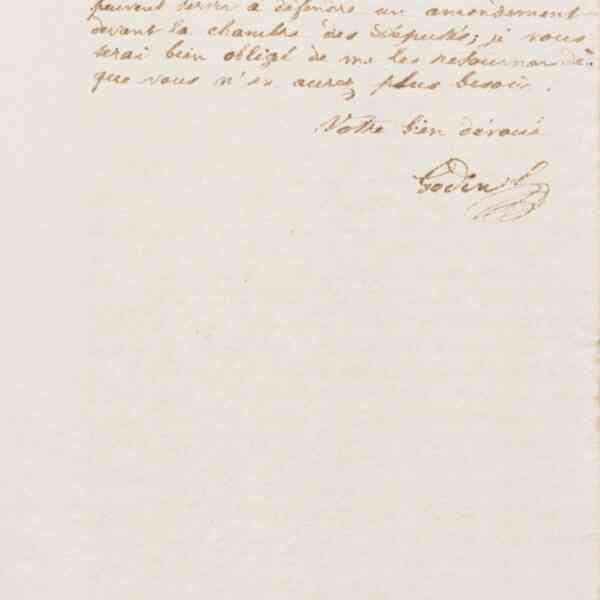 peuvent servir à défendre un amendement
devant la chambre des Députés; je vous
serai bien obligé de me les retourner dès
que vous n'en aurez plus besoin.
Votre bien dévoué
Godin